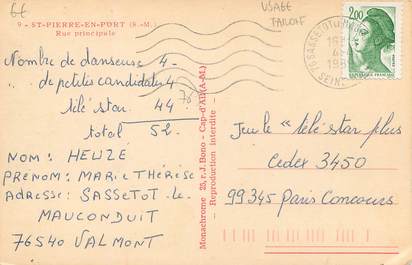 6€
USAGE
TARDIF
9 - ST-PIERRE-EN-PORT (S.-M.)
Rue principale
76 SASSETOT-LE-MAUC
SEINE
2,00
Nombre de danseuse 4 -
" de petites candidates 4
télé star 44
total 52
NOM : HEUZÉ
PRÉNOM : MARIE THÉRÈSE
ADRESSE : SASSETOT-le-
MAUCONDUIT
76540 VALMONT
Monochrome 25, r. J. Bono - Cap-d'Ail (A.-M.)
Reproduction interdite -
Jeu le " télé star plus
Cedex 3450
99345 Paris Concours